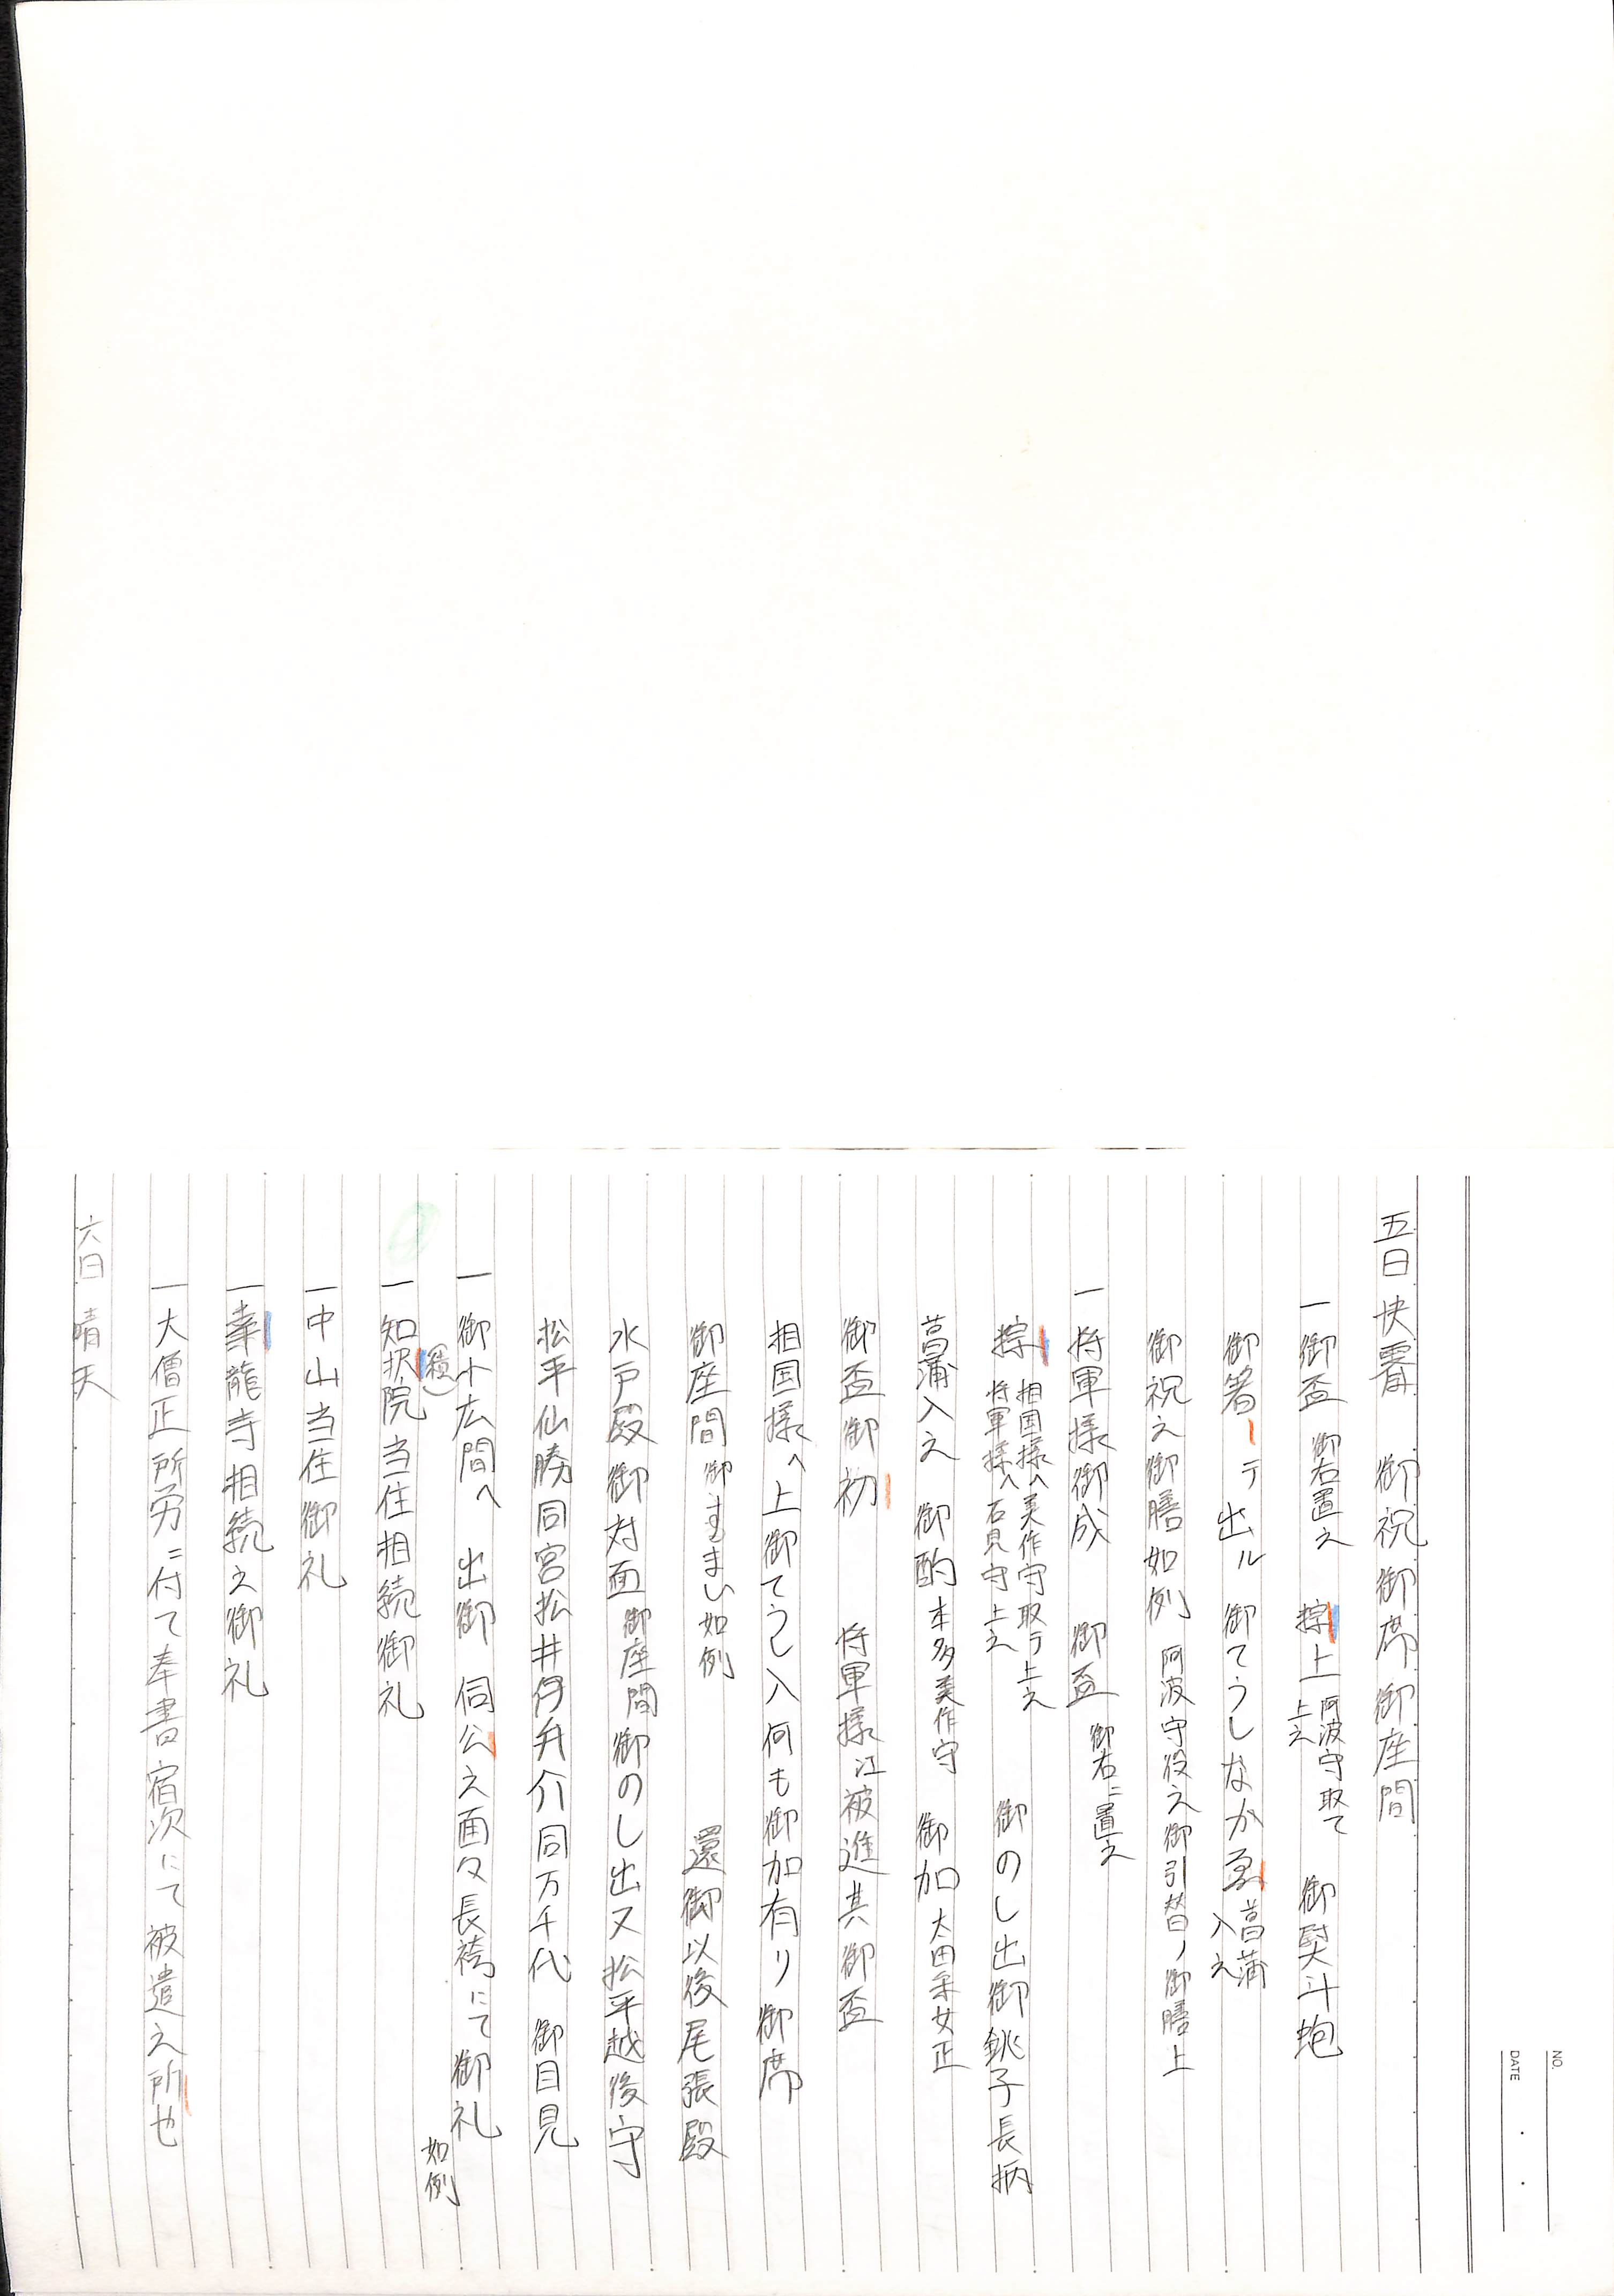 五日 快霽 御祝御席御座間
一御盃 御右置之 粽上 阿波守取て上之 御熨斗蚫
御箸ーテ出ル 御てうしなかゑ 菖蒲入之
御祝之御膳如例 阿波守役之御引替ノ御膳上
一将軍様御成 御盃 御右ニ置之
粽 相国様へ美作守取テ上之 将軍様へ石見守上之 御のし出御銚子長柄
菖蒲入之 御酌 本多美作守 御加 太田采女正
御盃御初 将軍様江被進其御盃
相国様へ上御てうし入何も御加有り御席
御座間 御すまい如例 還御以後尾張殿
水戸殿御対面 御座間御のし出又松平越後守
松平仙勝同宮松井伊弁介同万千代 御目見
一御小広間へ 出御 伺公之面々長袴にて御礼 如例
一知択院当住相続御礼
(積)
一中山当住御礼
一幸龍寺相続之御礼
一大僧正所労ニ付て奉書宿次にて被遣之所也
六日 晴天
NO.
DATE